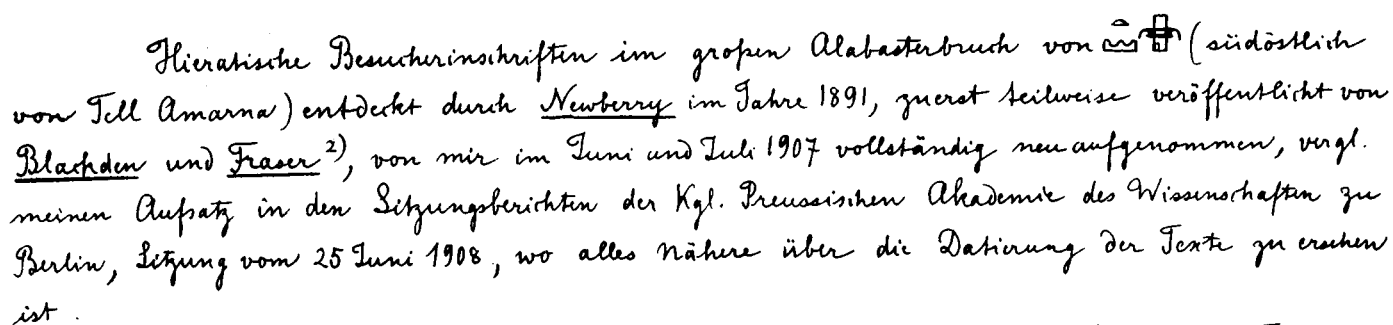 Hieratische Besucherinschriften im großen Alabasterbruch von (südöstlich
von Tell Amarna) entdeckt durch Newberry im Jahre 1891, zuerst teilweise veröffentlicht von
Blackden und Fraser ²), von mir im Juni und Juli 1907 vollständig neu aufgenommen, vergl.
meinen Aufsatz in den Sitzungsberichten der Kgl. Preussischen Akademie des Wissenschaften zu
Berlin, Sitzung vom 25 Juni 1908, wo alles Nähere über die Datierung der Texte zu ersehen
ist.